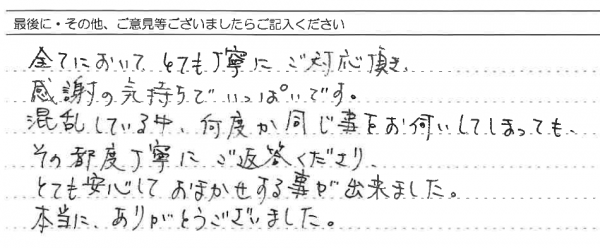 最後に・その他、ご意見等ございましたらご記入ください
全てにおいて、とても丁寧に ご対応頂き、
感謝の気持ちで いっぱいです。
混乱している中、何度か同じ事をお伺いしてしまっても、
その都度丁寧に ご返答くださり、
とても安心して おまかせする事が出来ました。
本当に、ありがとうございました。